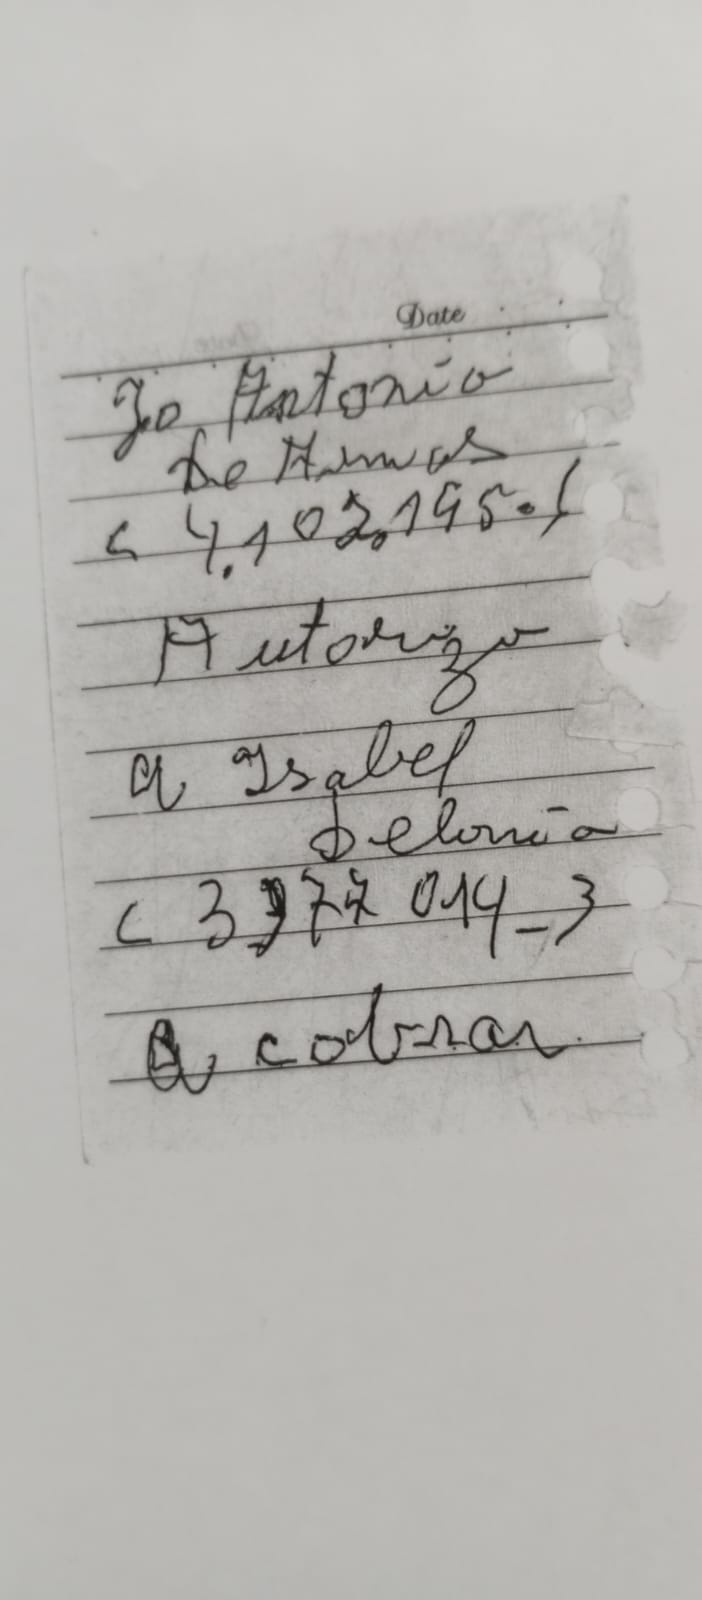 Date
Yo Antonio
De Armas
C 4.102.195-1
Autorizo
a Isabel
C 3.977 014-3
a cobrar.